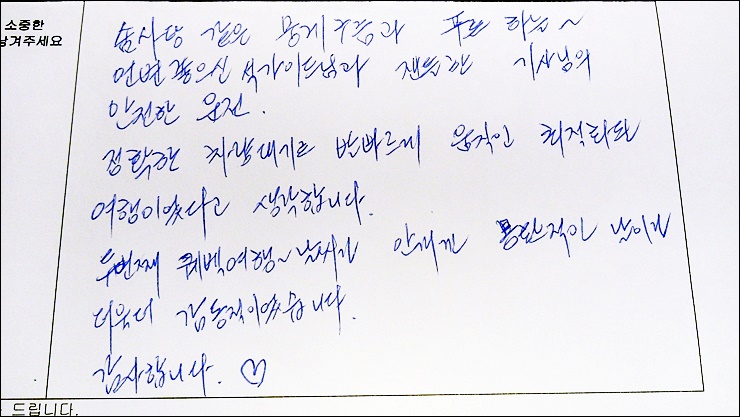 소중한
남겨주세요
솜사탕 같은 뭉게구름과 푸른 하늘~
언변 좋으신 석가이드님과 젠틀한 기사님의
안전한 운전.
정확한 차량대기로 발빠르게 움직인 최적화된
여행이었다고 생각합니다.
두번째 퀘벡여행~ 날씨가 안개낀 몽환적인 날이라
더욱더 감동적이었습니다.
감사합니다. ♡
드립니다.